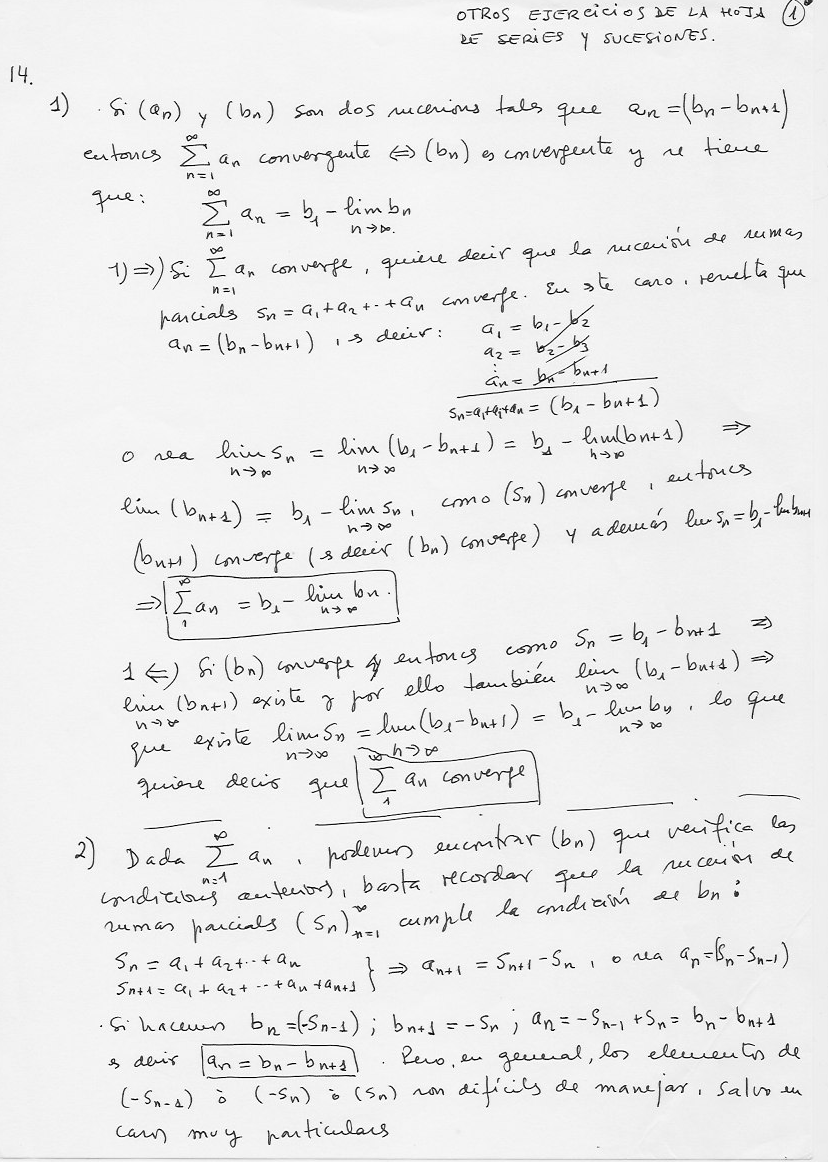 OTROS EJERCICIOS DE LA HOJA ①
DE SERIES Y SUCESIONES.
14.
1) · Si (an) y (bn) son dos sucesions tales que an = (bn - bn+1)
entonces ∑_{n=1}^{∞} an convergente ⇔ (bn) es convergente y se tiene
que: ∑_{n=1}^{∞} an = b1 - lim_{n→∞} bn
1) ⇒) Si ∑_{n=1}^{∞} an converge, quiere decir que la sucesión de sumas
parciales Sn = a1 + a2 + ·· + an converge. En este caso, resulta que
an = (bn - bn+1), es decir: a1 = b1 - b2
a2 = b2 - b3
⋮
an = bn - bn+1
Sn = a1 + a2 + an = (b1 - bn+1)
o sea lim_{n→∞} Sn = lim_{n→∞} (b1 - bn+1) = b1 - lim_{n→∞} (bn+1) ⇒
lim (bn+1) = b1 - lim_{n→∞} Sn, como (Sn) converge, entonces
(bn+1) converge (es decir (bn) converge) y además lim Sn = b1 - lim bn+1
⇒ ∑_{1}^{∞} an = b1 - lim_{n→∞} bn.
1 ⇐) Si (bn) converge y entonces como Sn = b1 - bn+1 ⇒
lim_{n→∞} (bn+1) existe y por ello también lim_{n→∞} (b1 - bn+1) ⇒
que existe lim_{n→∞} Sn = lim_{n→∞} (b1 - bn+1) = b1 - lim_{n→∞} bn, lo que
quiere decir que ∑_{1}^{∞} an converge
2) Dada ∑_{n=1}^{∞} an, podemos encontrar (bn) que verifica las
condiciones anteriores, basta recordar que la sucesión de
sumas parciales (Sn)_{n=1}^{∞} cumple la condición de bn:
Sn = a1 + a2 + ·· + an
Sn+1 = a1 + a2 + ·· + an + an+1 } ⇒ an+1 = Sn+1 - Sn, o sea an = (Sn - Sn-1)
· Si hacemos bn = (-Sn-1); bn+1 = -Sn; an = -Sn-1 + Sn = bn - bn+1
es decir an = bn - bn+1. Pero, en general, los elementos de
(-Sn-1) ò (-Sn) ò (Sn) son difíciles de manejar, salvo en
casos muy particulares